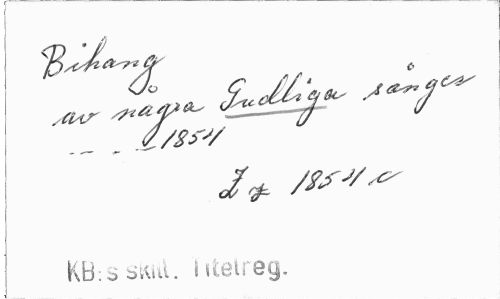 Bihang
av några Gudliga sånger
- - - -1854
Z z 1854 c
KB:s skill. Titelreg.